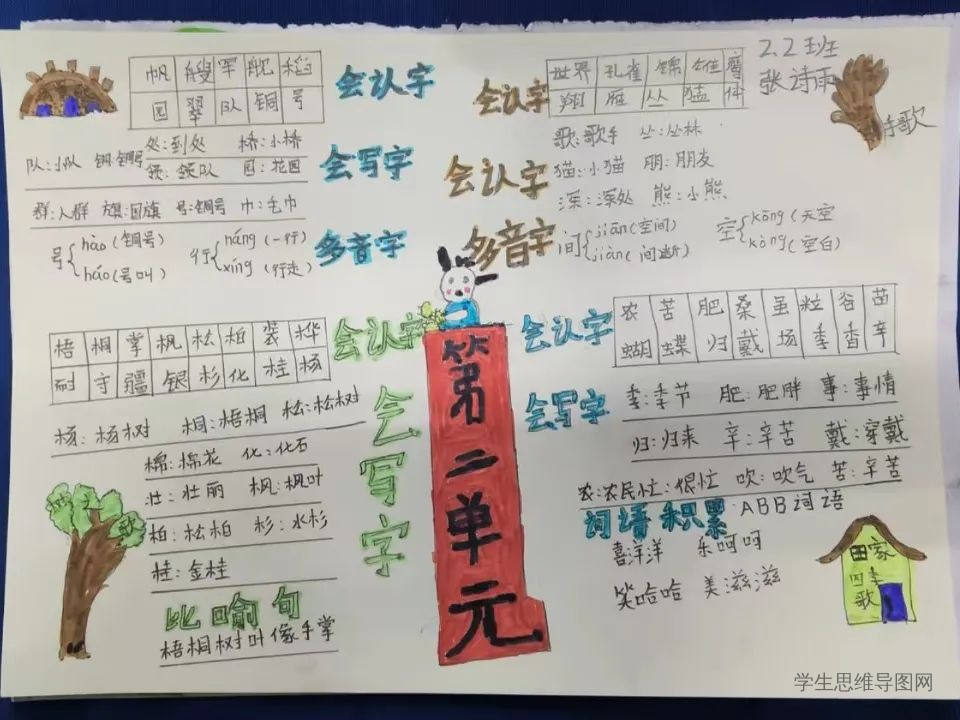 帆 艘 军 舰 稻
园 翠 队 铜 号
会认字
队:小队 铜:铜号 处:到处 桥:小桥
领:领队 园:花园
会写字
群:人群 旗:国旗 号:铜号 巾:毛巾
号 hào(铜号)
háo(号叫)
行 háng(一行)
xíng(行走)
多音字
世界 孔雀 锦 雄 鹰
翔 雁 丛 猛 休
会认字
2.2班
张诗雨
手歌
歌:歌手 丛:丛林
猫:小猫 朋:朋友
深:深处 熊:小熊
会认字
多音字
间 jiān(空间)
jiàn(间断)
空 kōng(天空
kòng(空白)
梧 桐 掌 枫 松 柏 装 桦
耐 守 疆 银 杉 化 桂 杨
会认字
杨:杨树 桐:梧桐 松:松树
棉:棉花 化:化石
壮:壮丽 枫:枫叶
柏:松柏 杉:水杉
桂:金桂
会写字
歌
比喻句
梧桐树叶像手掌
第二单元
会认字
农 苦 肥 桑 虽 粒 谷 苗
蝴 蝶 归 戴 场 季 香 辛
会写字
季:季节 肥:肥胖 事:事情
归:归来 辛:辛苦 戴:穿戴
农:农民 忙:很忙 吹:吹气 苦:辛苦
词语积累 ABB词语
喜洋洋 乐呵呵
笑哈哈 美滋滋
田家
四季
歌
学生思维导图网